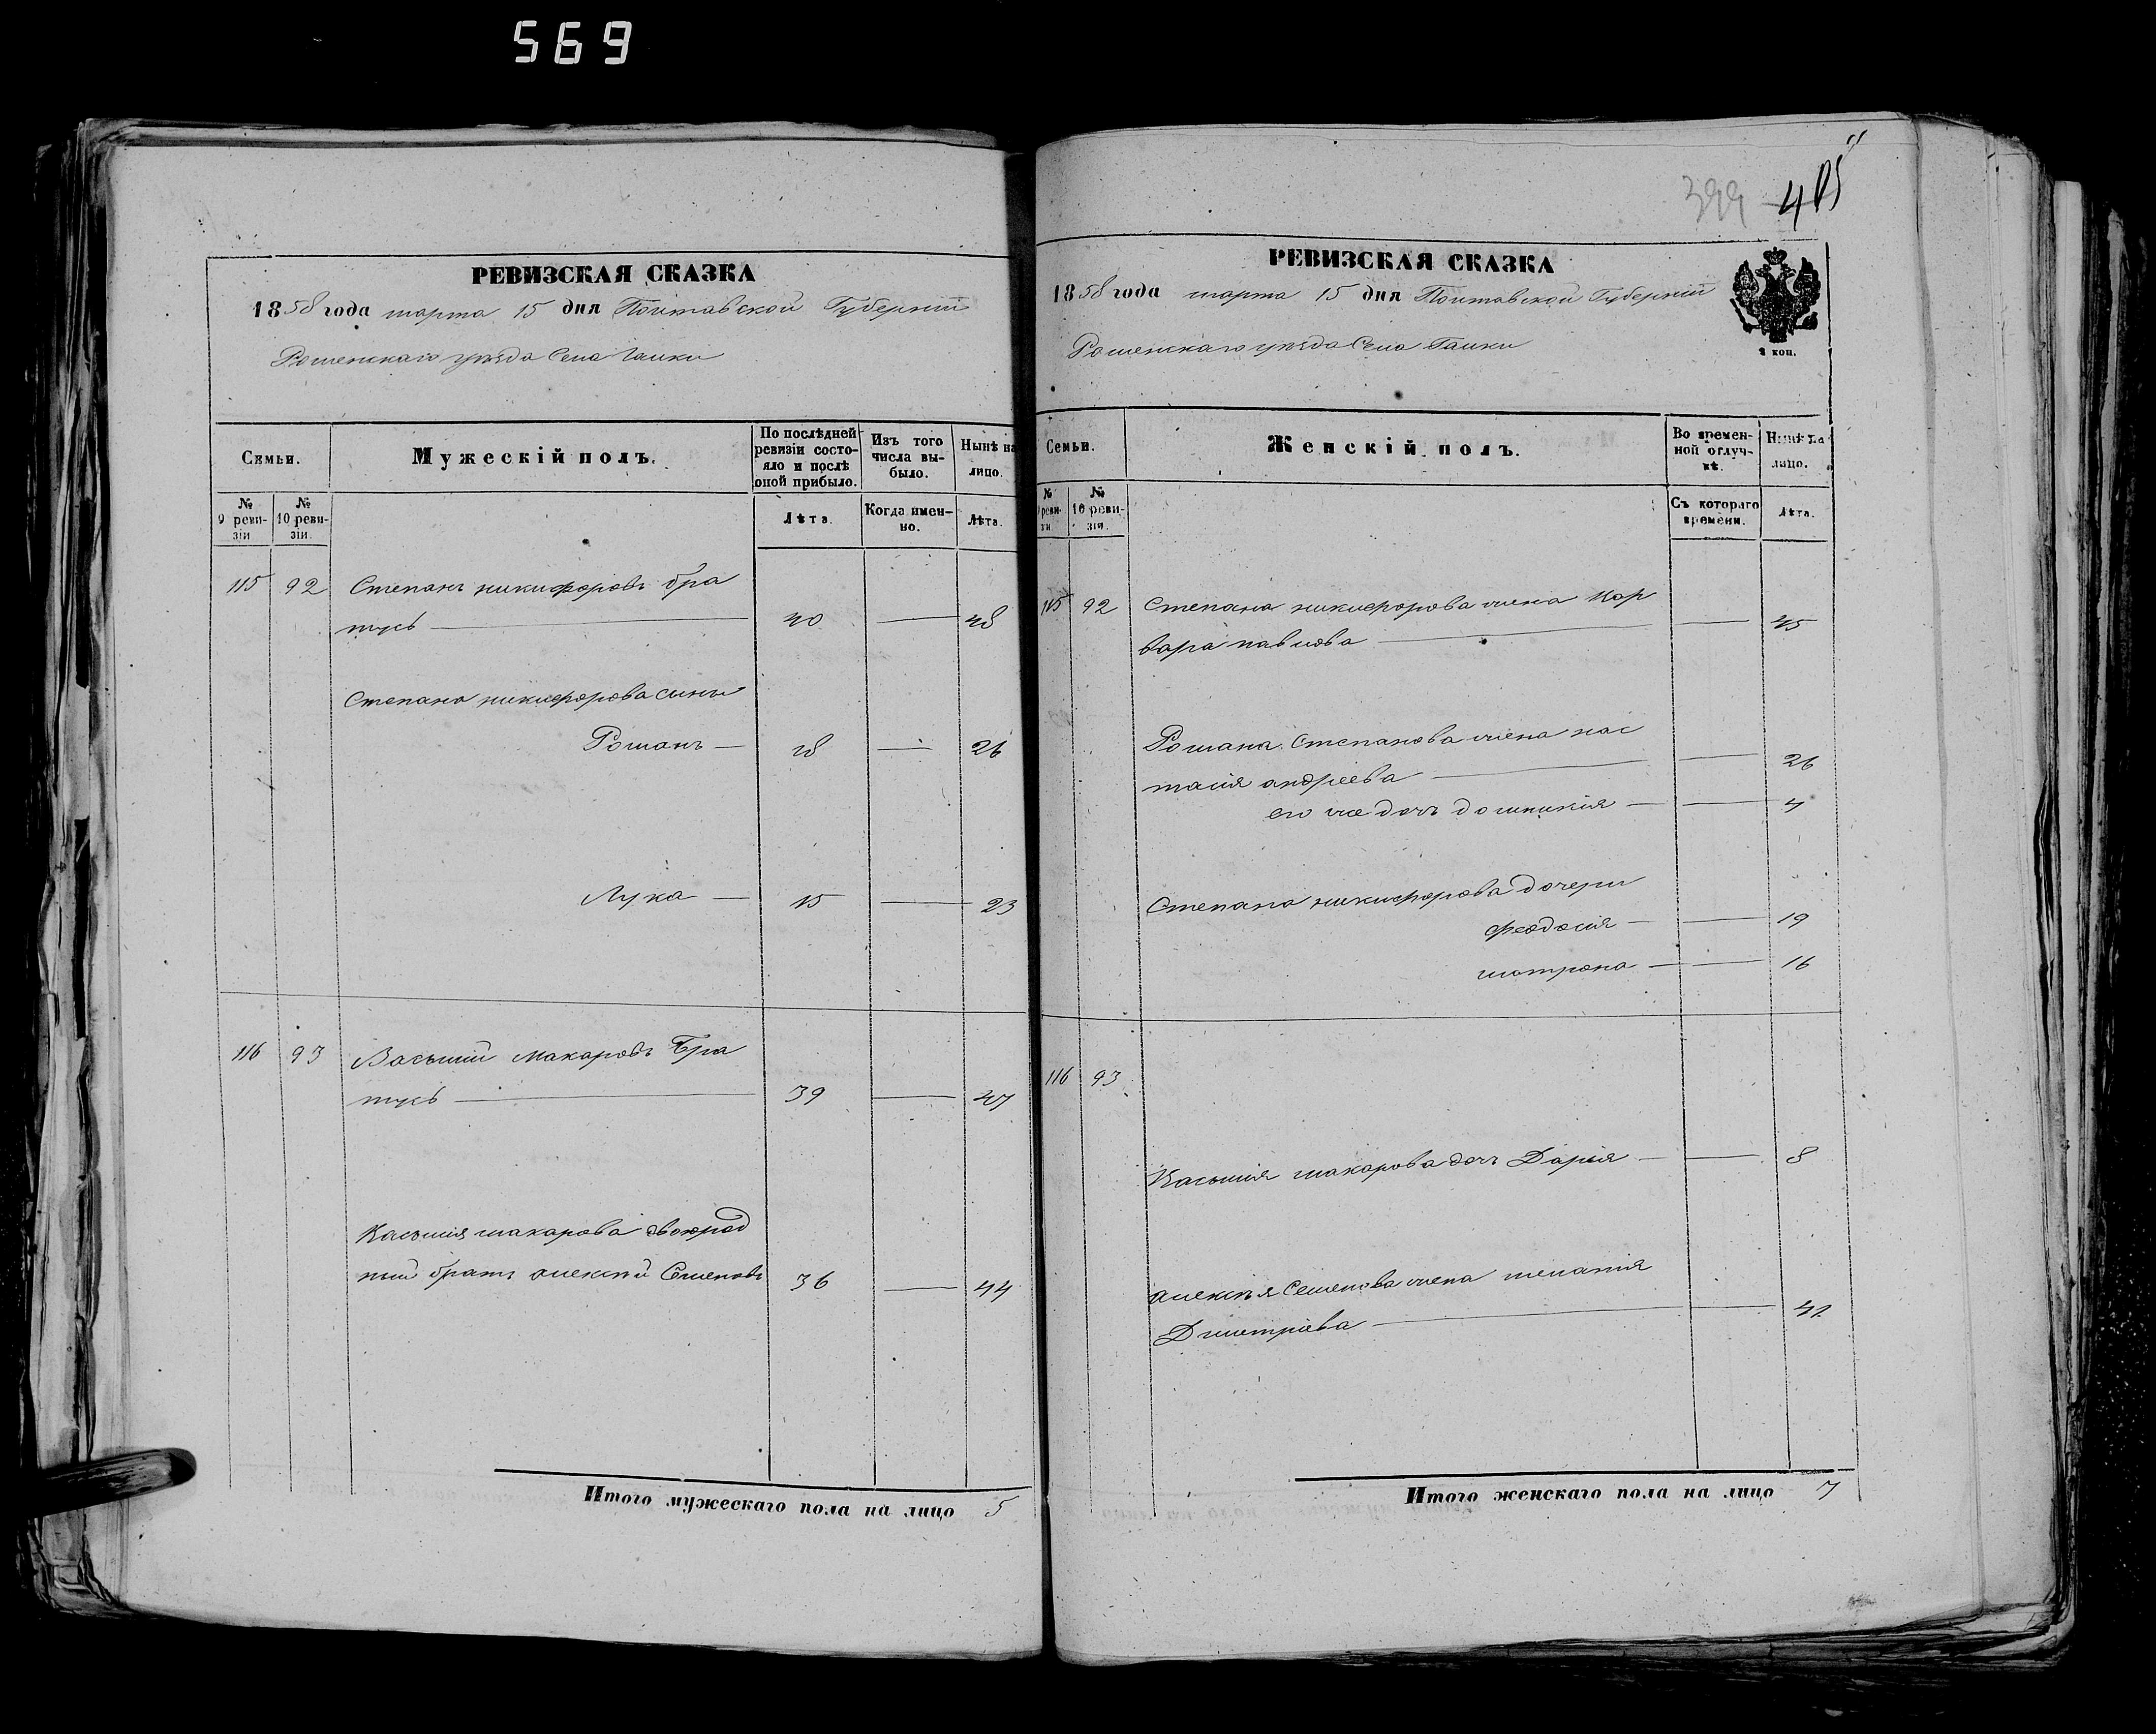 569
399 405
РЕВИЗСКАЯ СКАЗКА
1858 года марта 15 дня Полтавской Губерніи
Роменскаго уѣзда Села Галки
Семьи. Мужескій полъ. По послѣдней ревизіи состояло и послѣ оной прибыло. Изъ того числа выбыло. Нынѣ на лицо.
№ 9 ревизіи № 10 ревизіи. Лѣта. Когда именно. Лѣта.
115 92 Степанъ никифоровъ бра
тусь 40 48
Степана никифорова сыны
Романъ 18 26
Лука 15 23
116 93 Василій Макаровъ Бра
тусь 39 47
Василія макарова двоюрод
ный братъ алексѣй Семеновъ 36 44
Итого мужескаго пола на лицо 5
РЕВИЗСКАЯ СКАЗКА
1858 года марта 15 дня Полтавской Губерніи
Роменскаго уѣзда Села Галки
2 коп.
Семьи. Женскій полъ. Во временной отлучкѣ. Нынѣ на лицо.
№ 9 ревизіи № 10 ревизіи. Съ котораго времени. Лѣта.
115 92 Степана никифорова жена Вар
вара павлова 45
Романа Степанова жена нас
тасія андреева 26
его же дочь домникія 4
Степана никифорова дочери
феодосія 19
матрона 16
116 93
Василія макарова дочь Дарія 8
алексѣя Семенова жена меланія
Дмитріева 41
Итого женскаго пола на лицо 7